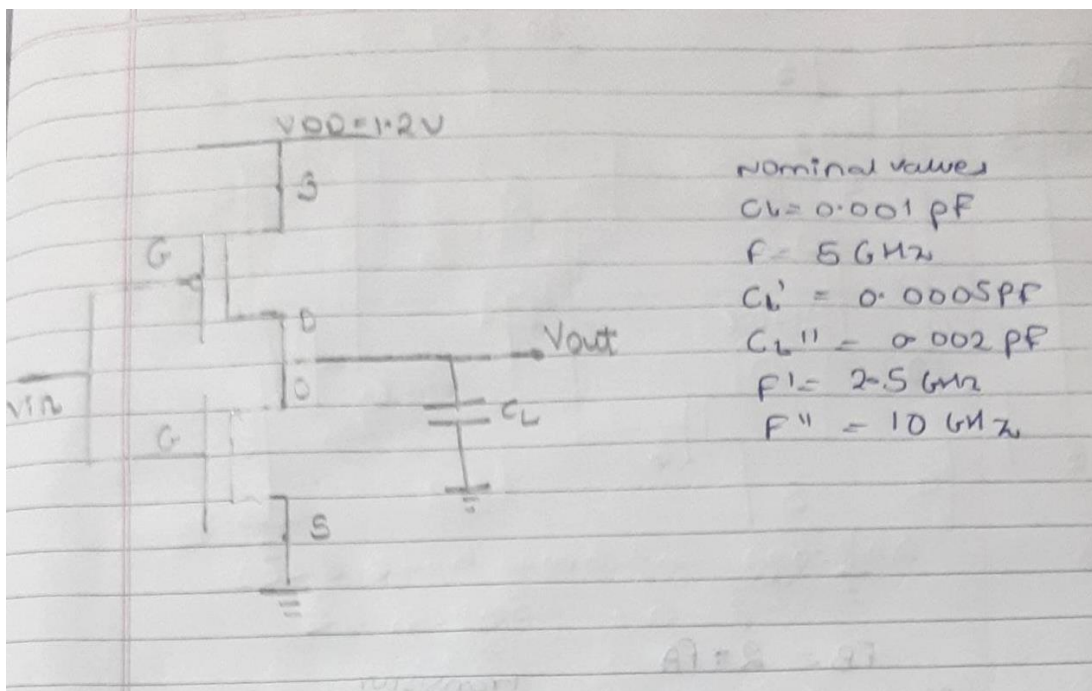 VDD=1.2V
S
G
D
Vout
D
Vin
CL
G
S
Nominal values
CL= 0.001 pF
F= 5 GHz
CL' = 0.0005PF
CL'' = 0.002 pF
F' = 2.5 GHz
F'' = 10 GHz